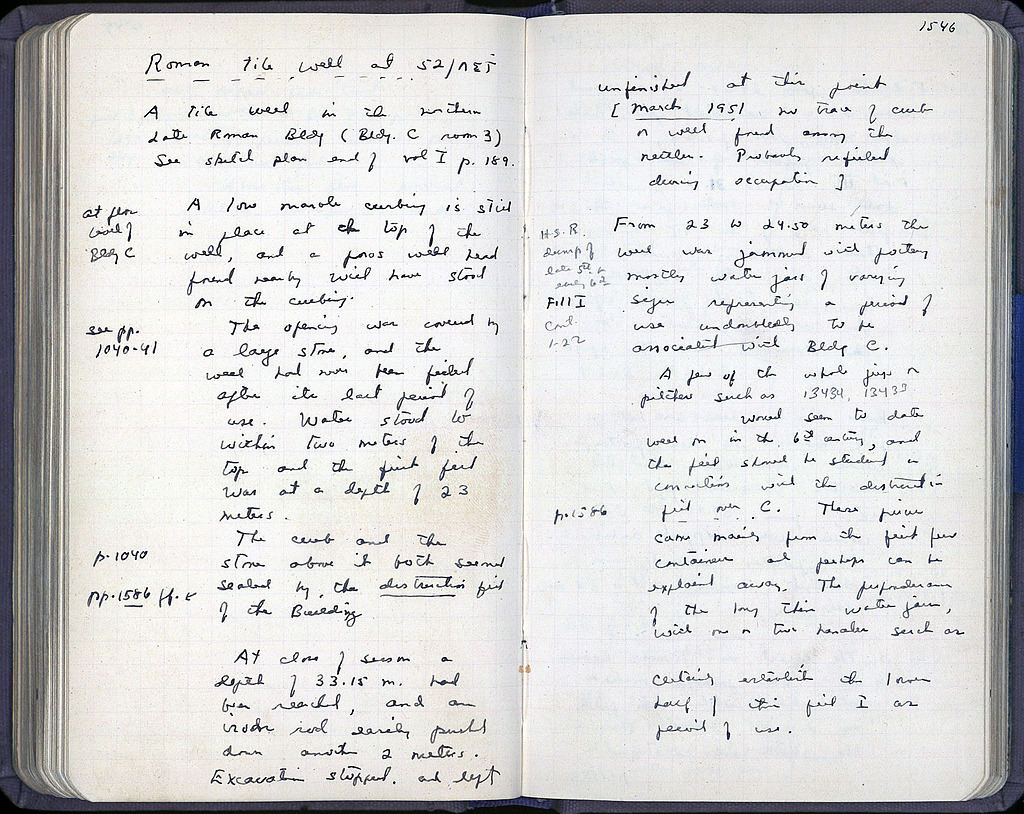 Roman tile well at 52/ΛΣΤ
A tile well in the northern
Late Roman Bldg (Bldg. C room 3)
See sketch plan end of vol I p. 189.
at floor
level of
Bldg C
A low marble curbing is still
in place at the top of the
well, and a poros well head
found nearby will have stood
on the curbing.
see pp.
1040-41
The opening was covered by
a large stone, and the
well had never been filled
after its last period of
use. Water stood to
within two meters of the
top and the first fill
was at a depth of 23
meters.
p. 1040
pp. 1586 ff.
The curb and the
stone above it both seemed
sealed by the destruction fill
of the Building
At close of season a
depth of 33.15 m. had
been reached, and an
iron rod easily pushed
down another 2 meters.
Excavation stopped. and left
1546
unfinished at this point
[March 1951 no trace of curb
or well found among the
nettles. Probably refilled
during occupation]
H.S.R.
dump of
late 5th to
early 6th
Fill I
Cont.
1-22
From 23 to 24.50 meters the
well was jammed with pottery
mostly water jars of varying
sizes representing a period of
use undoubtedly to be
associated with Bldg C.
A few of the whole jugs or
pitchers such as 13434, 13433
would seem to date
well on in the 6th century, and
the fill should be studied in
connection with the destruction
p. 1586
fill over C. These pieces
came mainly from the first few
containers and perhaps can be
explained away. The preponderance
of the long thin water jars,
with one or two handles such as
certainly establish the lower
half of this fill I as
period of use.